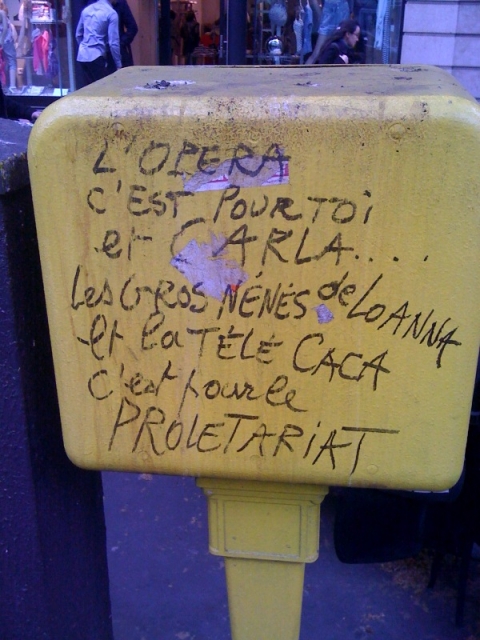 L'OPERA
C'EST POUR TOi
et CARLA....
les GROS NÉNÉS de LOANNA
et la TÉLÉ CACA
c'est pour le
PROLETARiAT